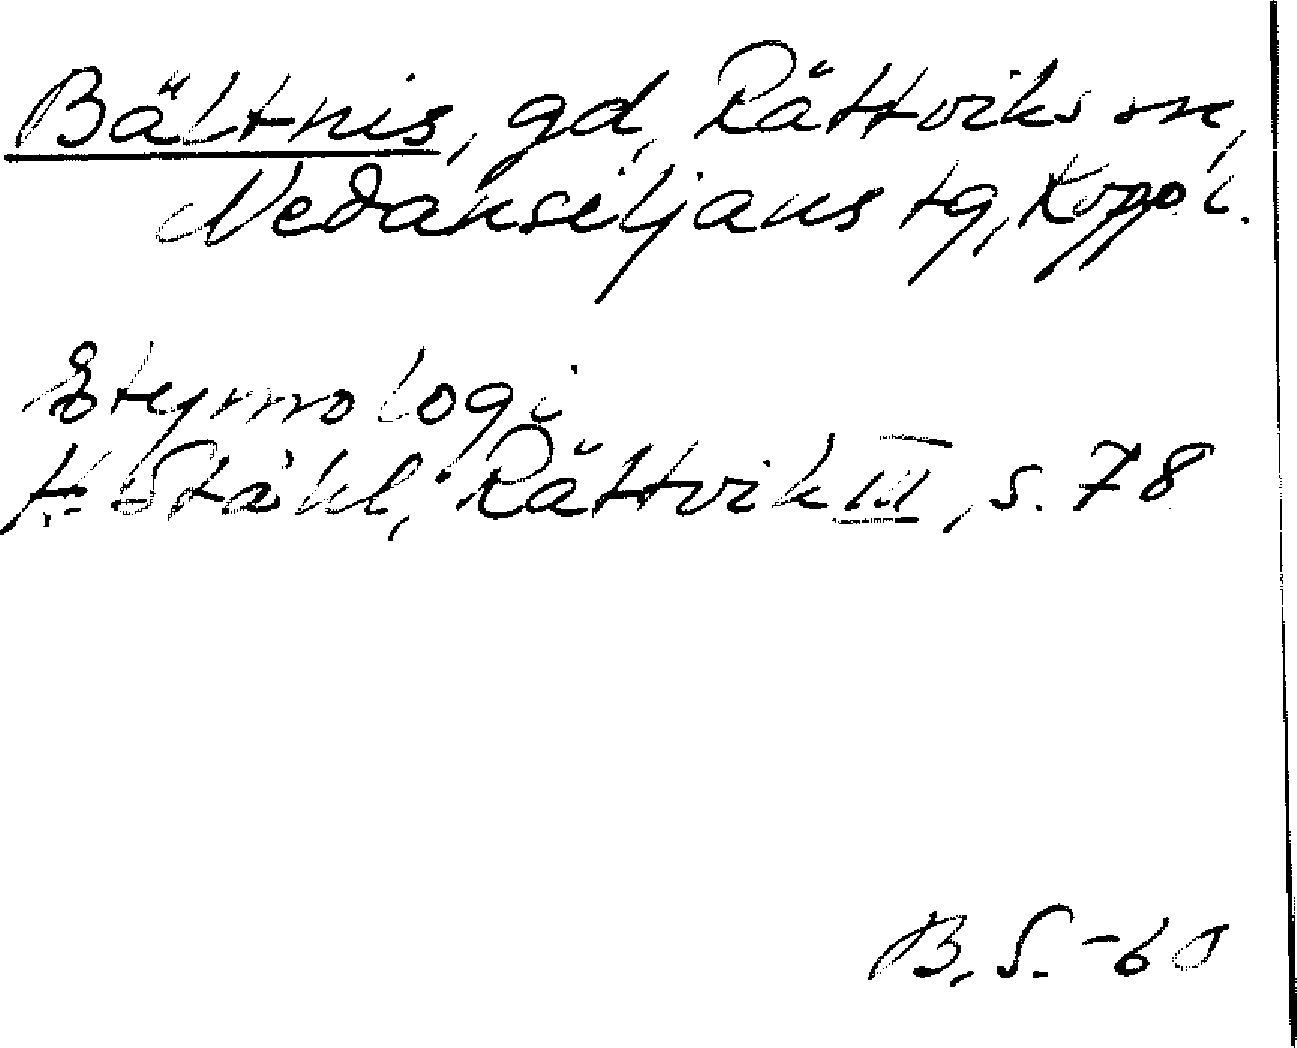 Bältnis, gd, Rättviks sn,
Nedansiljans tg, Kopp. l.
Etymologi
H. Ståhl, Rättvik III, s. 78
B. S. -60